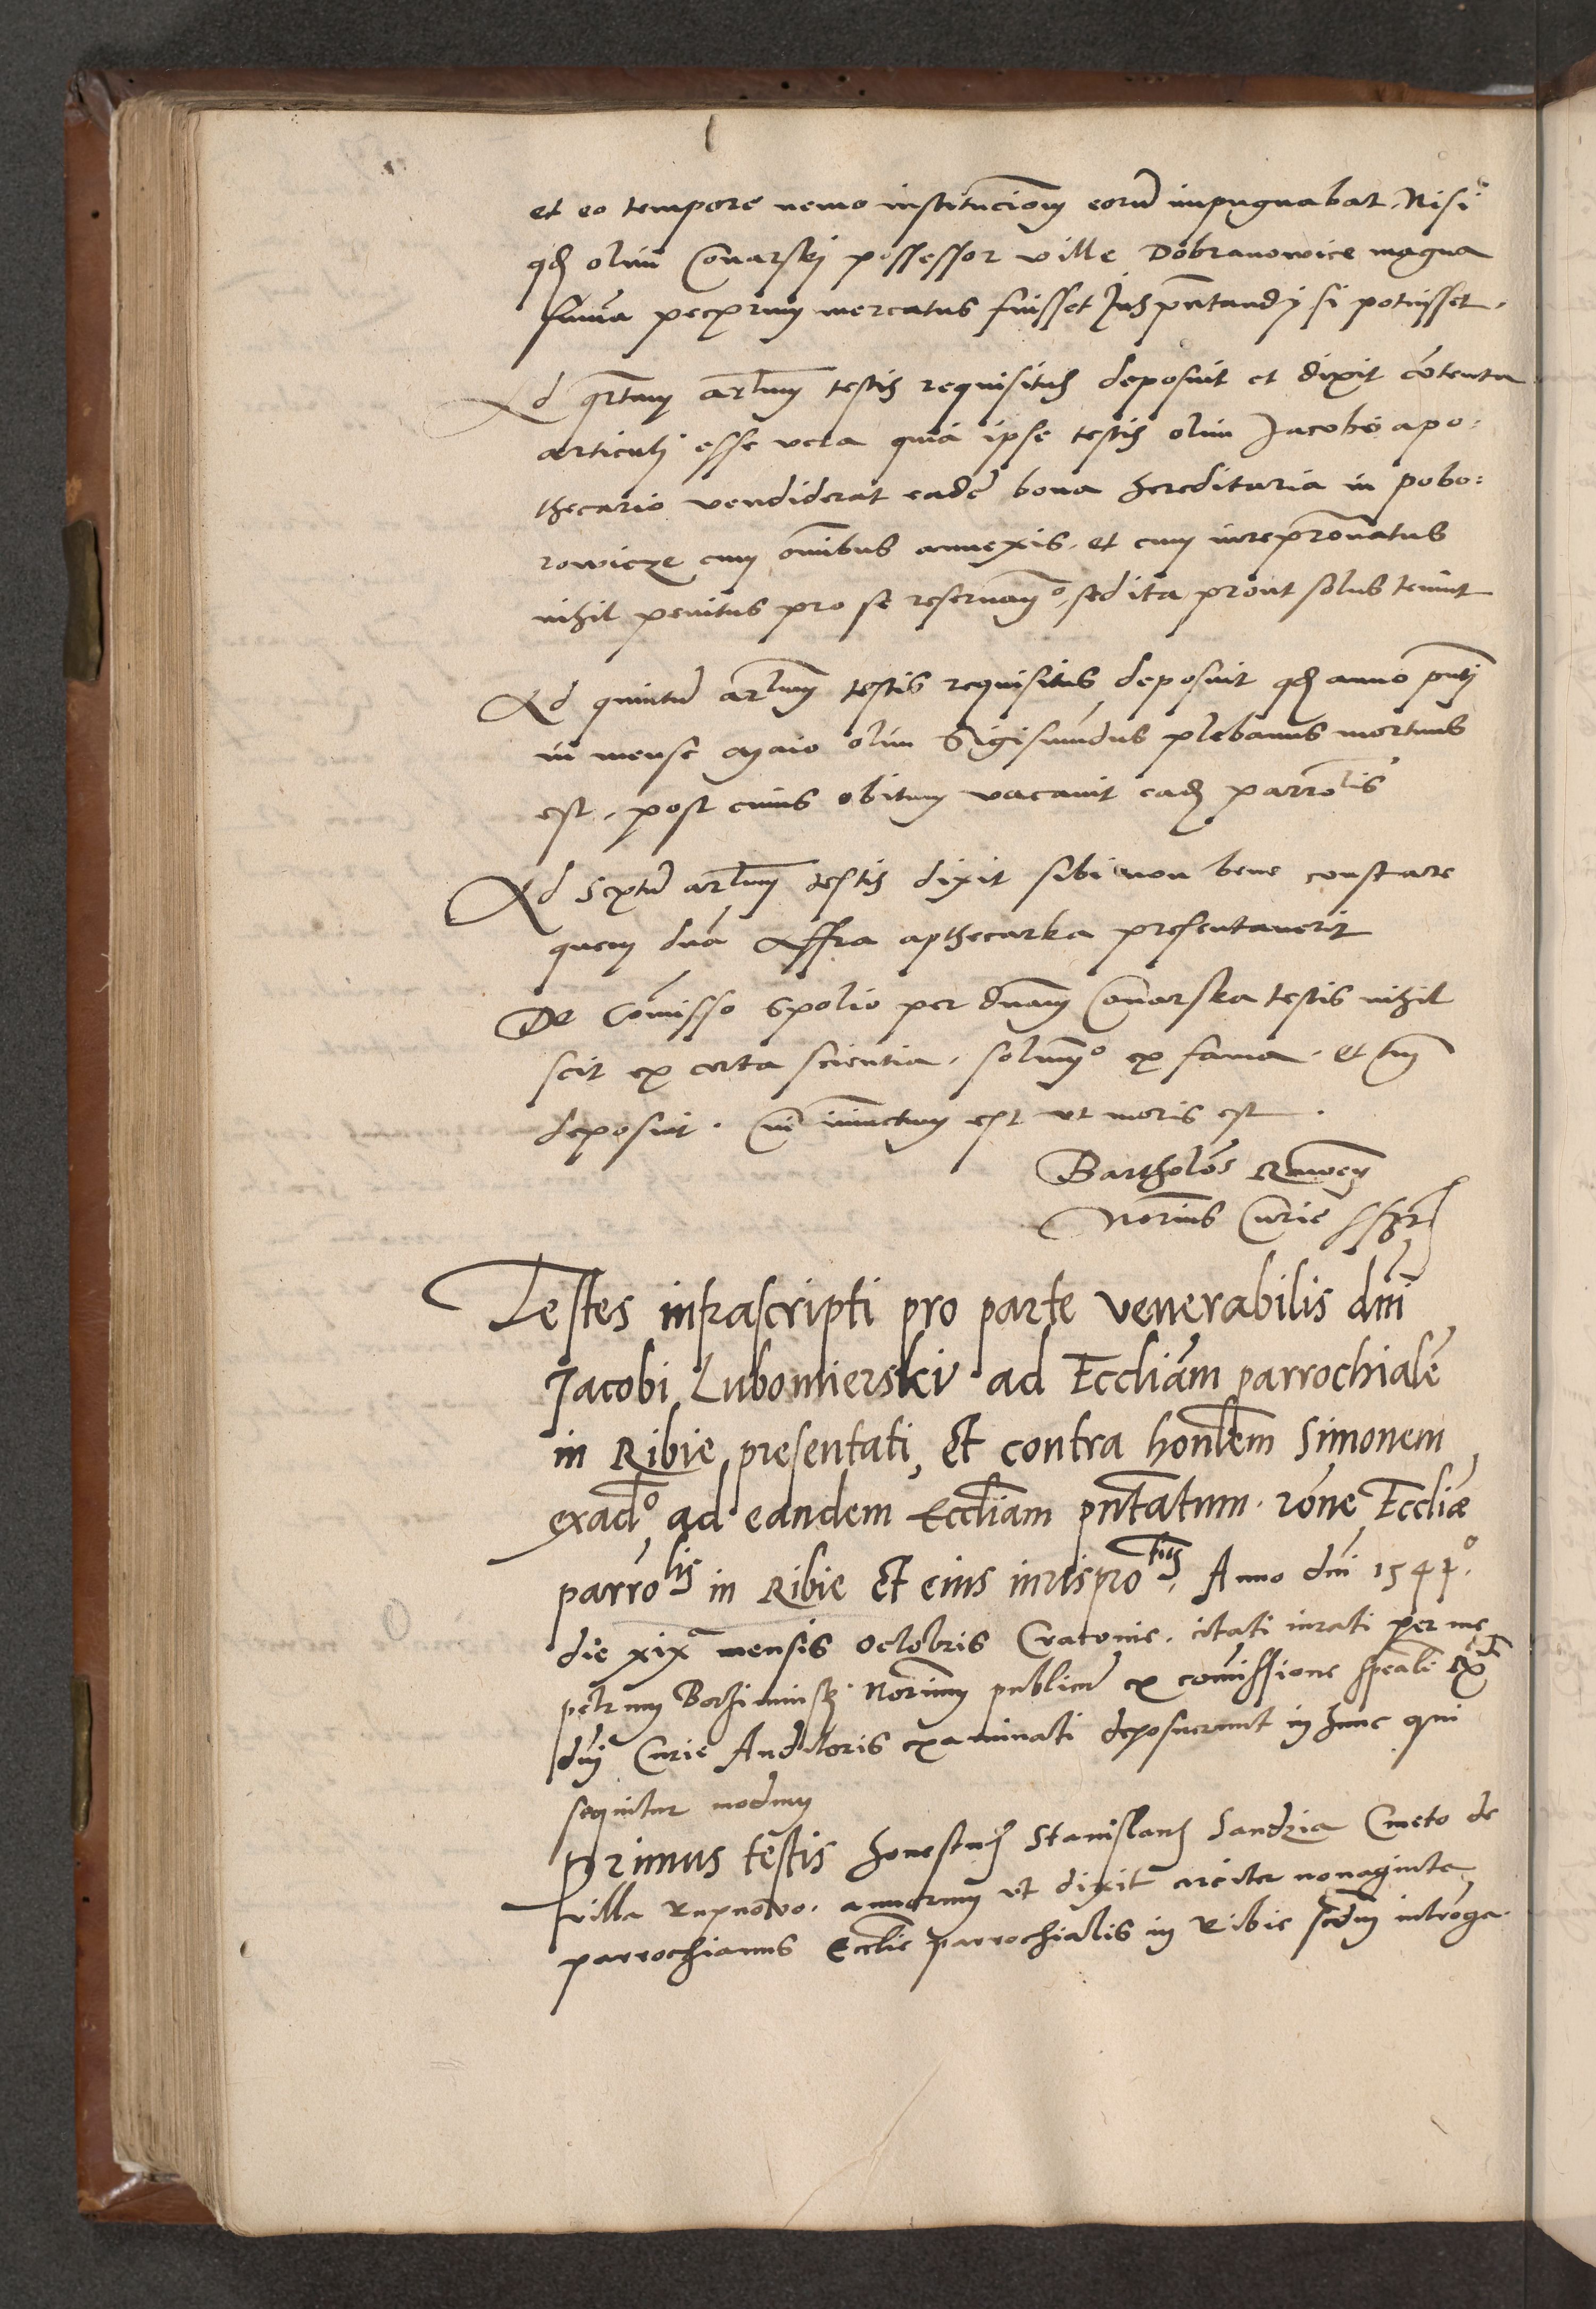 et eo tempore nemo institucionem eorum impugnabat. Nisi
qd olim Conarskj possessor ville Dobranowice magna
summa mercatus fuisset Jus pntandj si potuisset.
Ad qrtum arlum testis requisitus deposuit et dixit contenta
articulj esse vera quia ipse testis olim Jacobo apo:
thecario vendiderat eadem bona hereditaria in pobo:
rowicze cum omibus annexis. et cum iurepronatus
nihil penitus pro se reservando, sed ita prout solus tenuit
Ad quintum arlum testis requisitus deposuit qd anno pnti
in mense Maio olim Sigismundus plebanus mortuus
est. post cuius obitum vacavit eadem parrolis
Ad Sextum arlum testis dixit sibi non bene constare
quem dna Affra apthecarka presentaverit
De Comisso spolio per dnam Conarska testis nihil
scit ex certa scientia. solummo ex fama. et sic
deposuit. iniunctum est ut moris est.
Bartholos
Norius Curie
Testes infrascripti pro parte venerabilis dni
Jacobi Lubomierski ad Eccliam parrochialem
in Ribie presentati, et contra honlem Simonem
exadso ad eandem Eccliam pntatum. rone Eccliæ
parrolis in Ribie et eius iurispronatus, Anno dni 1541o.
die xixa mensis Octobris Cracovie. citati iurati per me
petrum Norium publicum ex comissione speali
dni Curie Auditoris examinati deposuerunt in hunc qui
sequitur modum
Primus testis honestus Stanislaus Sandzia Cmeto de
villa Rupnowo. annorum ut dixit circiter nonaginta
parrochianus Ecclie parrochialis in Ribie scdm introga.